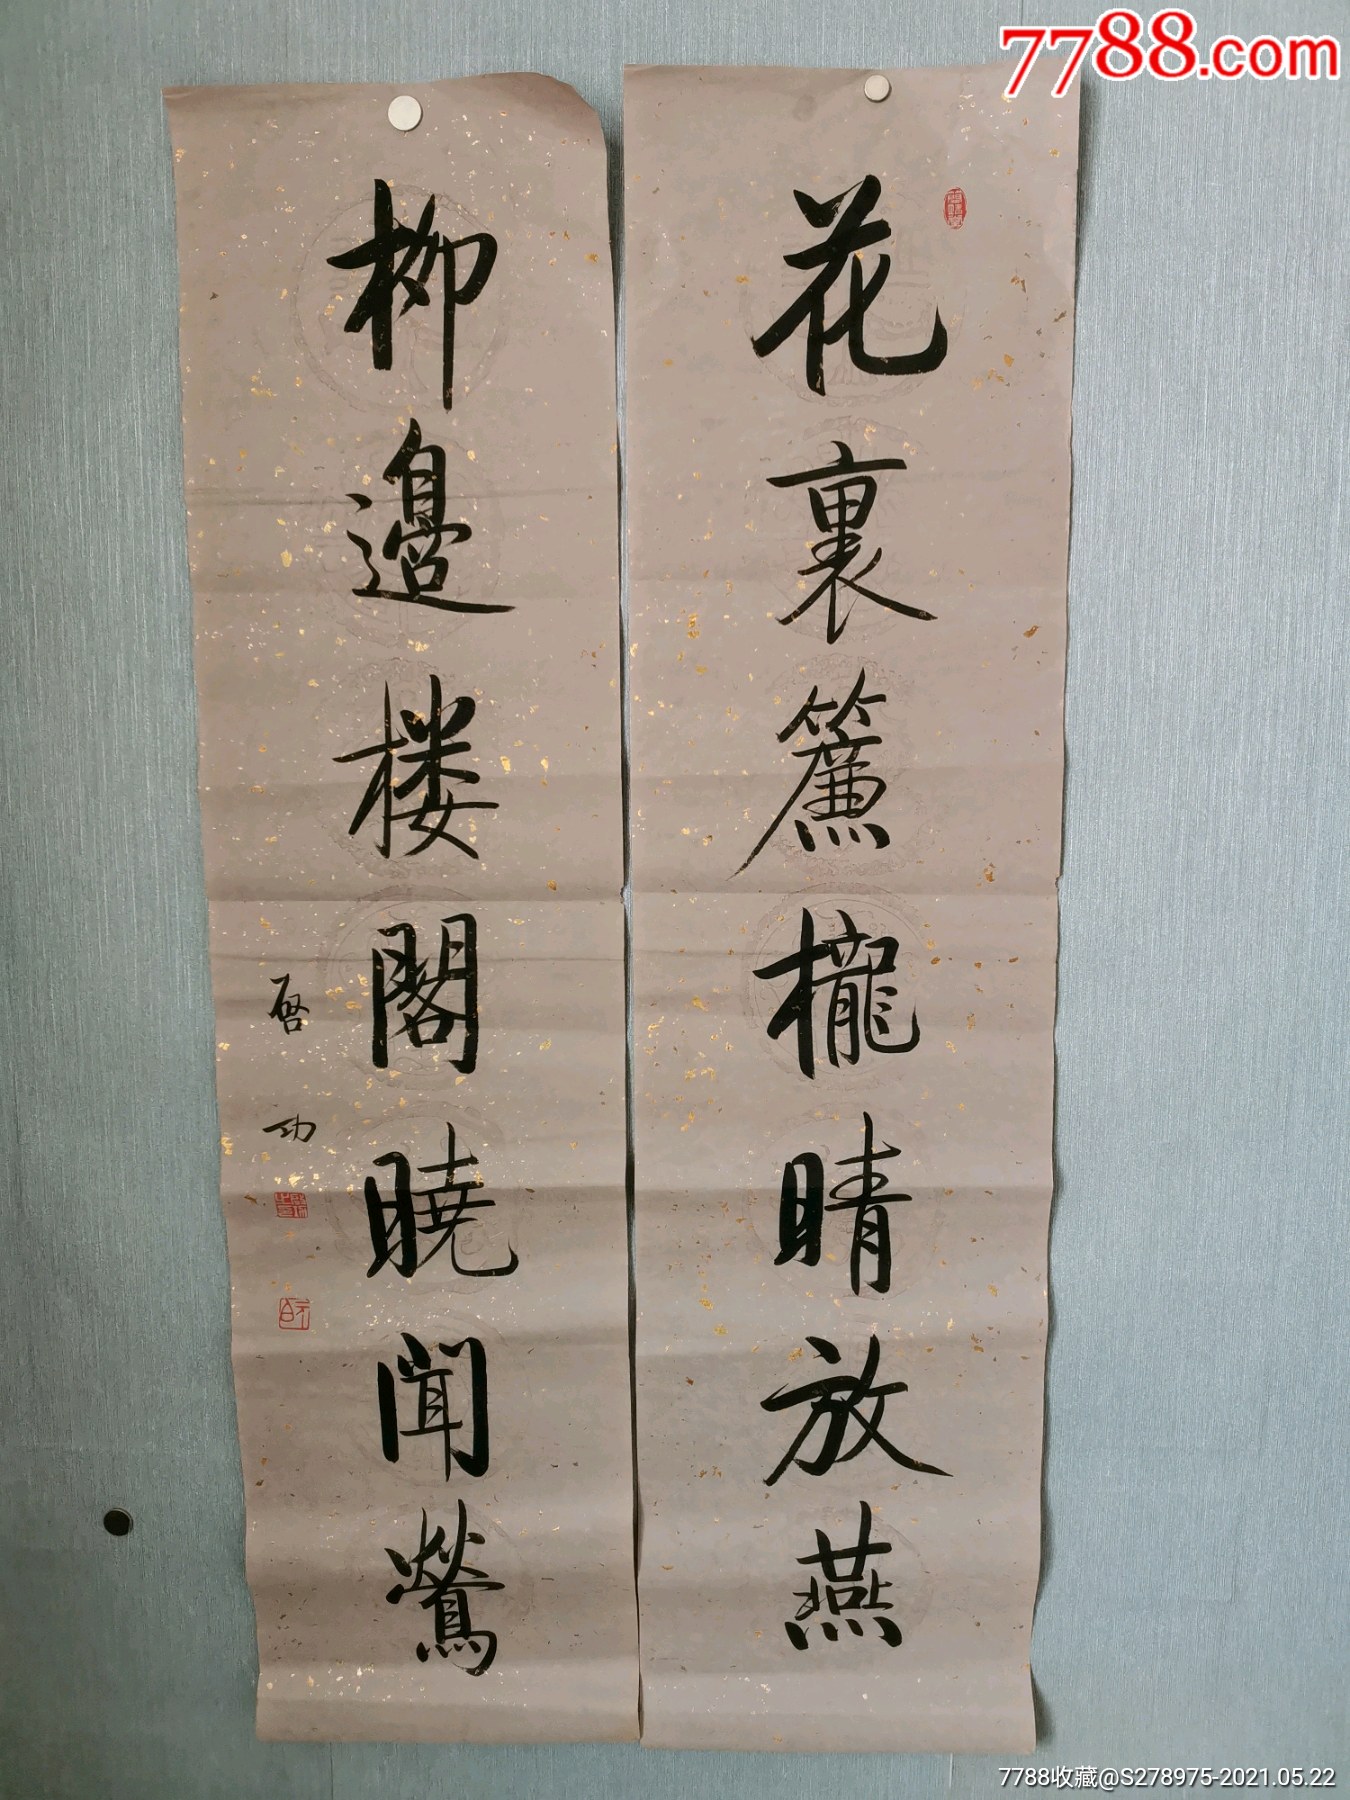 7788.com
花裏簾櫳晴放燕
柳邊楼閣曉聞鶯
啓功
7788收藏@S278975-2021.05.22